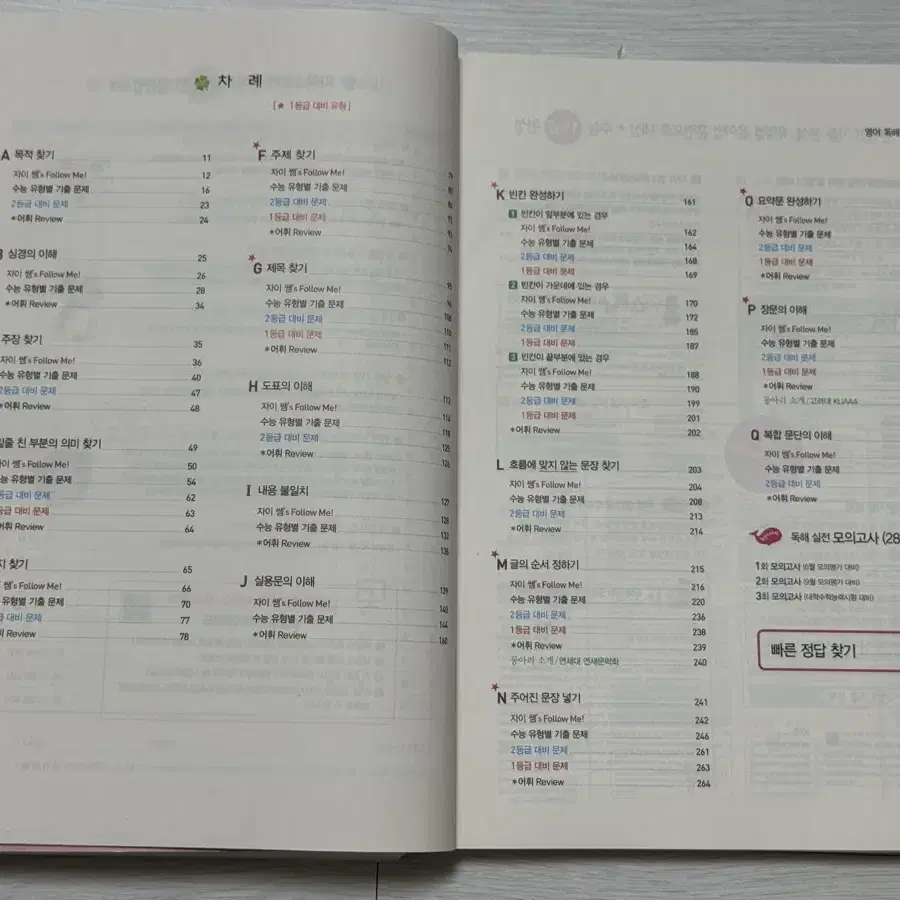 차 례
[★ 1등급 대비 유형]
A 목적 찾기 11
자이 쌤's Follow Me! 12
수능 유형별 기출 문제 16
2등급 대비 문제 23
*어휘 Review 24
심경의 이해 25
자이 쌤's Follow Me! 26
수능 유형별 기출 문제 28
*어휘 Review 34
주장 찾기 35
자이 쌤's Follow Me! 36
수능 유형별 기출 문제 40
2등급 대비 문제 47
*어휘 Review 48
밑줄 친 부분의 의미 찾기 49
자이 쌤's Follow Me! 50
수능 유형별 기출 문제 54
2등급 대비 문제 62
1등급 대비 문제 63
어휘 Review 64
찾기 65
쌤's Follow Me! 66
유형별 기출 문제 70
대비 문제 77
Review 78
★F 주제 찾기
자이 쌤's Follow Me!
수능 유형별 기출 문제
2등급 대비 문제
1등급 대비 문제
*어휘 Review
★G 제목 찾기
자이 쌤's Follow Me!
수능 유형별 기출 문제
2등급 대비 문제
1등급 대비 문제
*어휘 Review 112
H 도표의 이해 113
자이 쌤's Follow Me! 114
수능 유형별 기출 문제 118
2등급 대비 문제 125
*어휘 Review 126
I 내용 불일치 127
자이 쌤's Follow Me! 128
수능 유형별 기출 문제 132
*어휘 Review 138
J 실용문의 이해 139
자이 쌤's Follow Me! 140
수능 유형별 기출 문제 144
*어휘 Review 160
영어 독해
★K 빈칸 완성하기 161
1 빈칸이 앞부분에 있는 경우
자이 쌤's Follow Me! 162
수능 유형별 기출 문제 164
2등급 대비 문제 168
1등급 대비 문제 169
2 빈칸이 가운데에 있는 경우
자이 쌤's Follow Me! 170
수능 유형별 기출 문제 172
2등급 대비 문제 185
1등급 대비 문제 187
3 빈칸이 끝부분에 있는 경우
자이 쌤's Follow Me! 188
수능 유형별 기출 문제 190
2등급 대비 문제 199
1등급 대비 문제 201
*어휘 Review 202
L 흐름에 맞지 않는 문장 찾기 203
자이 쌤's Follow Me! 204
수능 유형별 기출 문제 208
2등급 대비 문제 213
*어휘 Review 214
★M 글의 순서 정하기 215
자이 쌤's Follow Me! 216
수능 유형별 기출 문제 220
2등급 대비 문제 236
1등급 대비 문제 238
*어휘 Review 239
동아리 소개/연세대 연세문학회 240
★N 주어진 문장 넣기 241
자이 쌤's Follow Me! 242
수능 유형별 기출 문제 246
2등급 대비 문제 261
1등급 대비 문제 263
*어휘 Review 264
★O 요약문 완성하기
자이 쌤's Follow Me!
수능 유형별 기출 문제
2등급 대비 문제
1등급 대비 문제
*어휘 Review
★P 장문의 이해
자이 쌤's Follow Me!
수능 유형별 기출 문제
2등급 대비 문제
1등급 대비 문제
*어휘 Review
동아리 소개/고려대 KUAAA
Q 복합 문단의 이해
자이 쌤's Follow Me!
수능 유형별 기출 문제
2등급 대비 문제
*어휘 Review
독해 실전 모의고사 (28
1회 모의고사 (6월 모의평가 대비)
2회 모의고사 (9월 모의평가 대비)
3회 모의고사 (대학수학능력시험 대비)
빠른 정답 찾기